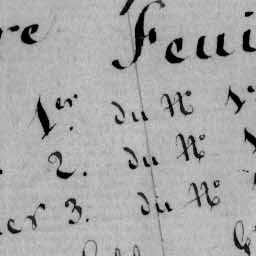 re Feui
1er. du N° 1
2. du N°
er 3. du N°